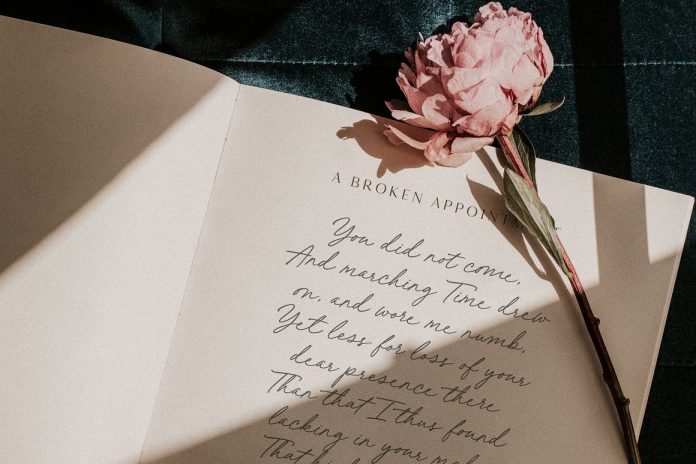 A BROKEN APPOINTM
You did not come,
And marching Time drew
on, and wore me numb,
Yet less for loss of your
dear presence there
Than that I thus found
lacking in your
That